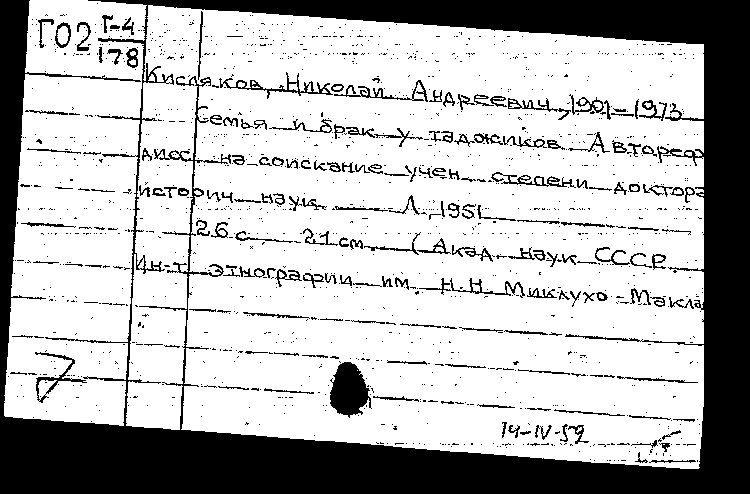 ГО2 Г-4
178
Кисляков, Николай Андреевич, 1901-1973
Семья и брак у таджиков Автореф
дисс. на соискание учен степени доктора
историч наук Л., 1951
26 с. 21 см. (Акад. наук СССР.
Ин-т этнографии им. Н.Н. Миклухо-Макла
14-IV-59